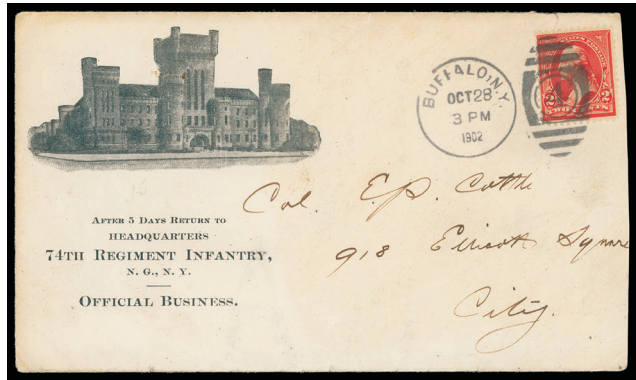 BUFFALO, N.Y.
OCT 28
3 PM
1902
2 2
AFTER 5 DAYS RETURN TO
HEADQUARTERS
74TH REGIMENT INFANTRY,
N. G., N. Y.
OFFICIAL BUSINESS.
Col. E.P. Cottle
918 Ellicott Square
City.